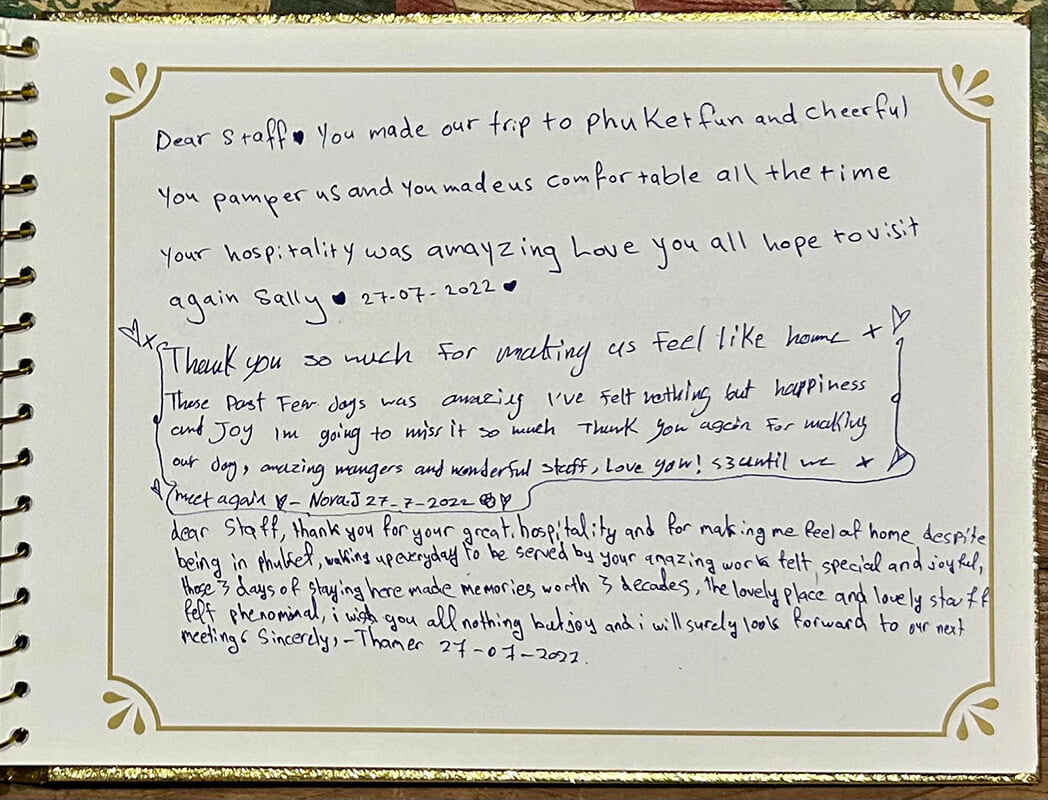 Dear Staff♥ You made our trip to phuket fun and cheerful
You pamper us and you made us comfortable all the time
Your hospitality was amayzing Love you all hope to visit
again Sally ♥ 27-07-2022 ♥
Thank you so much for making us feel like home x
These Past Few days was amazing I've felt nothing but happiness
and Joy Im going to miss it so much Thank you again for making
our day, amazing mangers and wonderful staff, Love you! <3 until we x
meet again ♥ - Nora.J 27-7-2022
dear Staff, thank you for your great hospitality and for making me feel at home despite
being in phuket, waking up everyday to be served by your amazing work felt special and joyful,
those 3 days of staying here made memories worth 3 decades, The lovely place and lovely staff
felt phenominal, i wish you all nothing but joy and i will surely look forward to our next
meeting. Sincerely, -Thamer 27-07-2022.